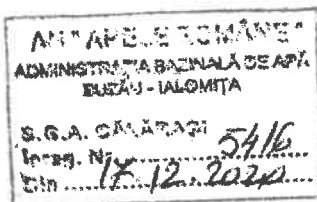 AN "APELE ROMÂNE"
ADMINISTRAȚIA BAZINALĂ DE APĂ
BUZĂU - IALOMIȚA
S.G.A. CĂLĂRAȘI
Înreg. Nr. 5416
Din 17.12.2020